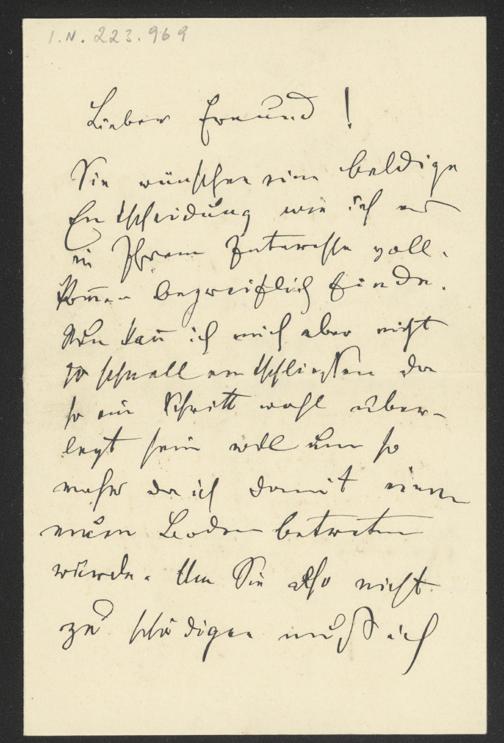 I.N. 223.969
Lieber Freund!
Sie wünschen eine baldige
Entscheidung wie ich es
in Ihrem Interesse voll-
kom̄en begreiflich finde.
Nun kan̄ ich mich aber nicht
so schnell entschließen da
so ein Schritt wohl über-
legt sein will um so
mehr da ich damit einen
neuen Boden betreten
würde. Um Sie also nicht
zu schädigen muß ich